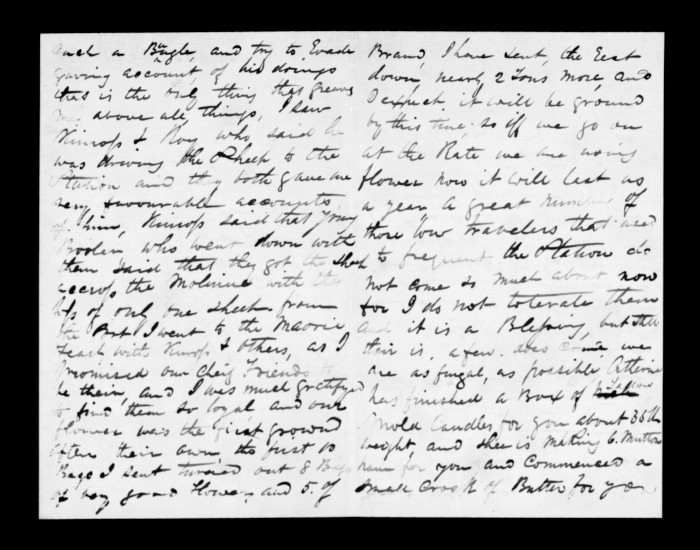 such a Bugle, and try to Evade
giving account of his doings
this is the only thing that greaves
me above all things, I saw
Kinross & Roy who said he
was driving the Sheep to the
Station and they both gave me
very favourable accounts
of him, Kinross said that young
who went down with
them said that they got the sheep
across the with the
loss of only one sheep. from
the Port I went to the Maorie
with Kinross & others, as I
promised our Cheif Friends to
be their, and I was much gratifyed
to find them so loyal and our
flower was the first growed
after their own, the first 10
Bags I sent turned out 8 Bags
of very good Flower, and 5. of
Brand, I have sent, the Rest
down, nearly 2 Tons more, and
I expect it will be ground
by this time, so if we go on
at the Rate we are using
flower now it will last us
a year a great number of
those low Travelers that used
to frequent the Station do
not come so much about now
for I do not tolerate them
and it is a Blessing, but still
their is a few. does come, we
are as frugal, as possible Catherine
has finished a Box of Tallow
Mold Candles for you about 35 lb
weight, and shee is making 6. Mutton
ham for you and Commenced a
small Crock of Butter for you